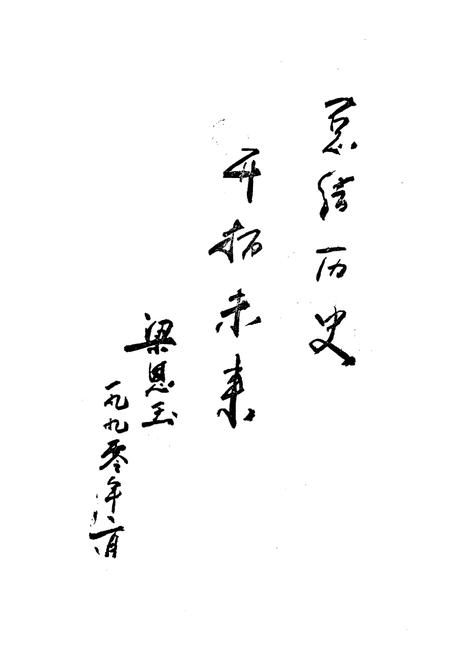 总结历史
开拓未来
梁恩玉
一九九零年八月